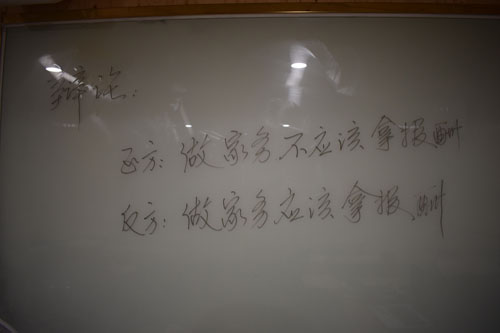 辩论:
正方: 做家务不应该拿报酬
反方: 做家务应该拿报酬